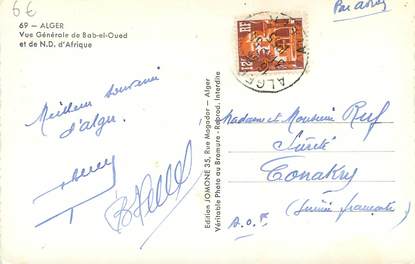 6€
69 - ALGER
Vue Générale de Bab-el-Oued
et de N.D. d'Afrique
Meilleur souvenir
d'alger.
Edition JOMONE 35, Rue Mogador - Alger
Véritable Photo au Bromure - Reprod. Interdite
12F RF
ALGER
Par avion
Madame et Monsieur Ruf
Sûreté
Conakry
(Guinée française)
A.O.F.